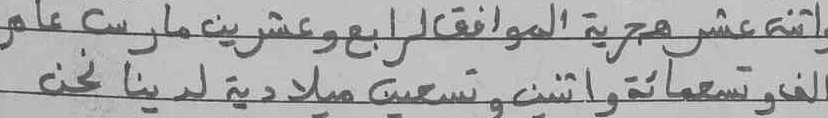 واتنى عشر هجرية الموافق الرابع وعشرين مارس عام
الف وتسعمائة واتنين وتسعين ميلادية لدينا نحن